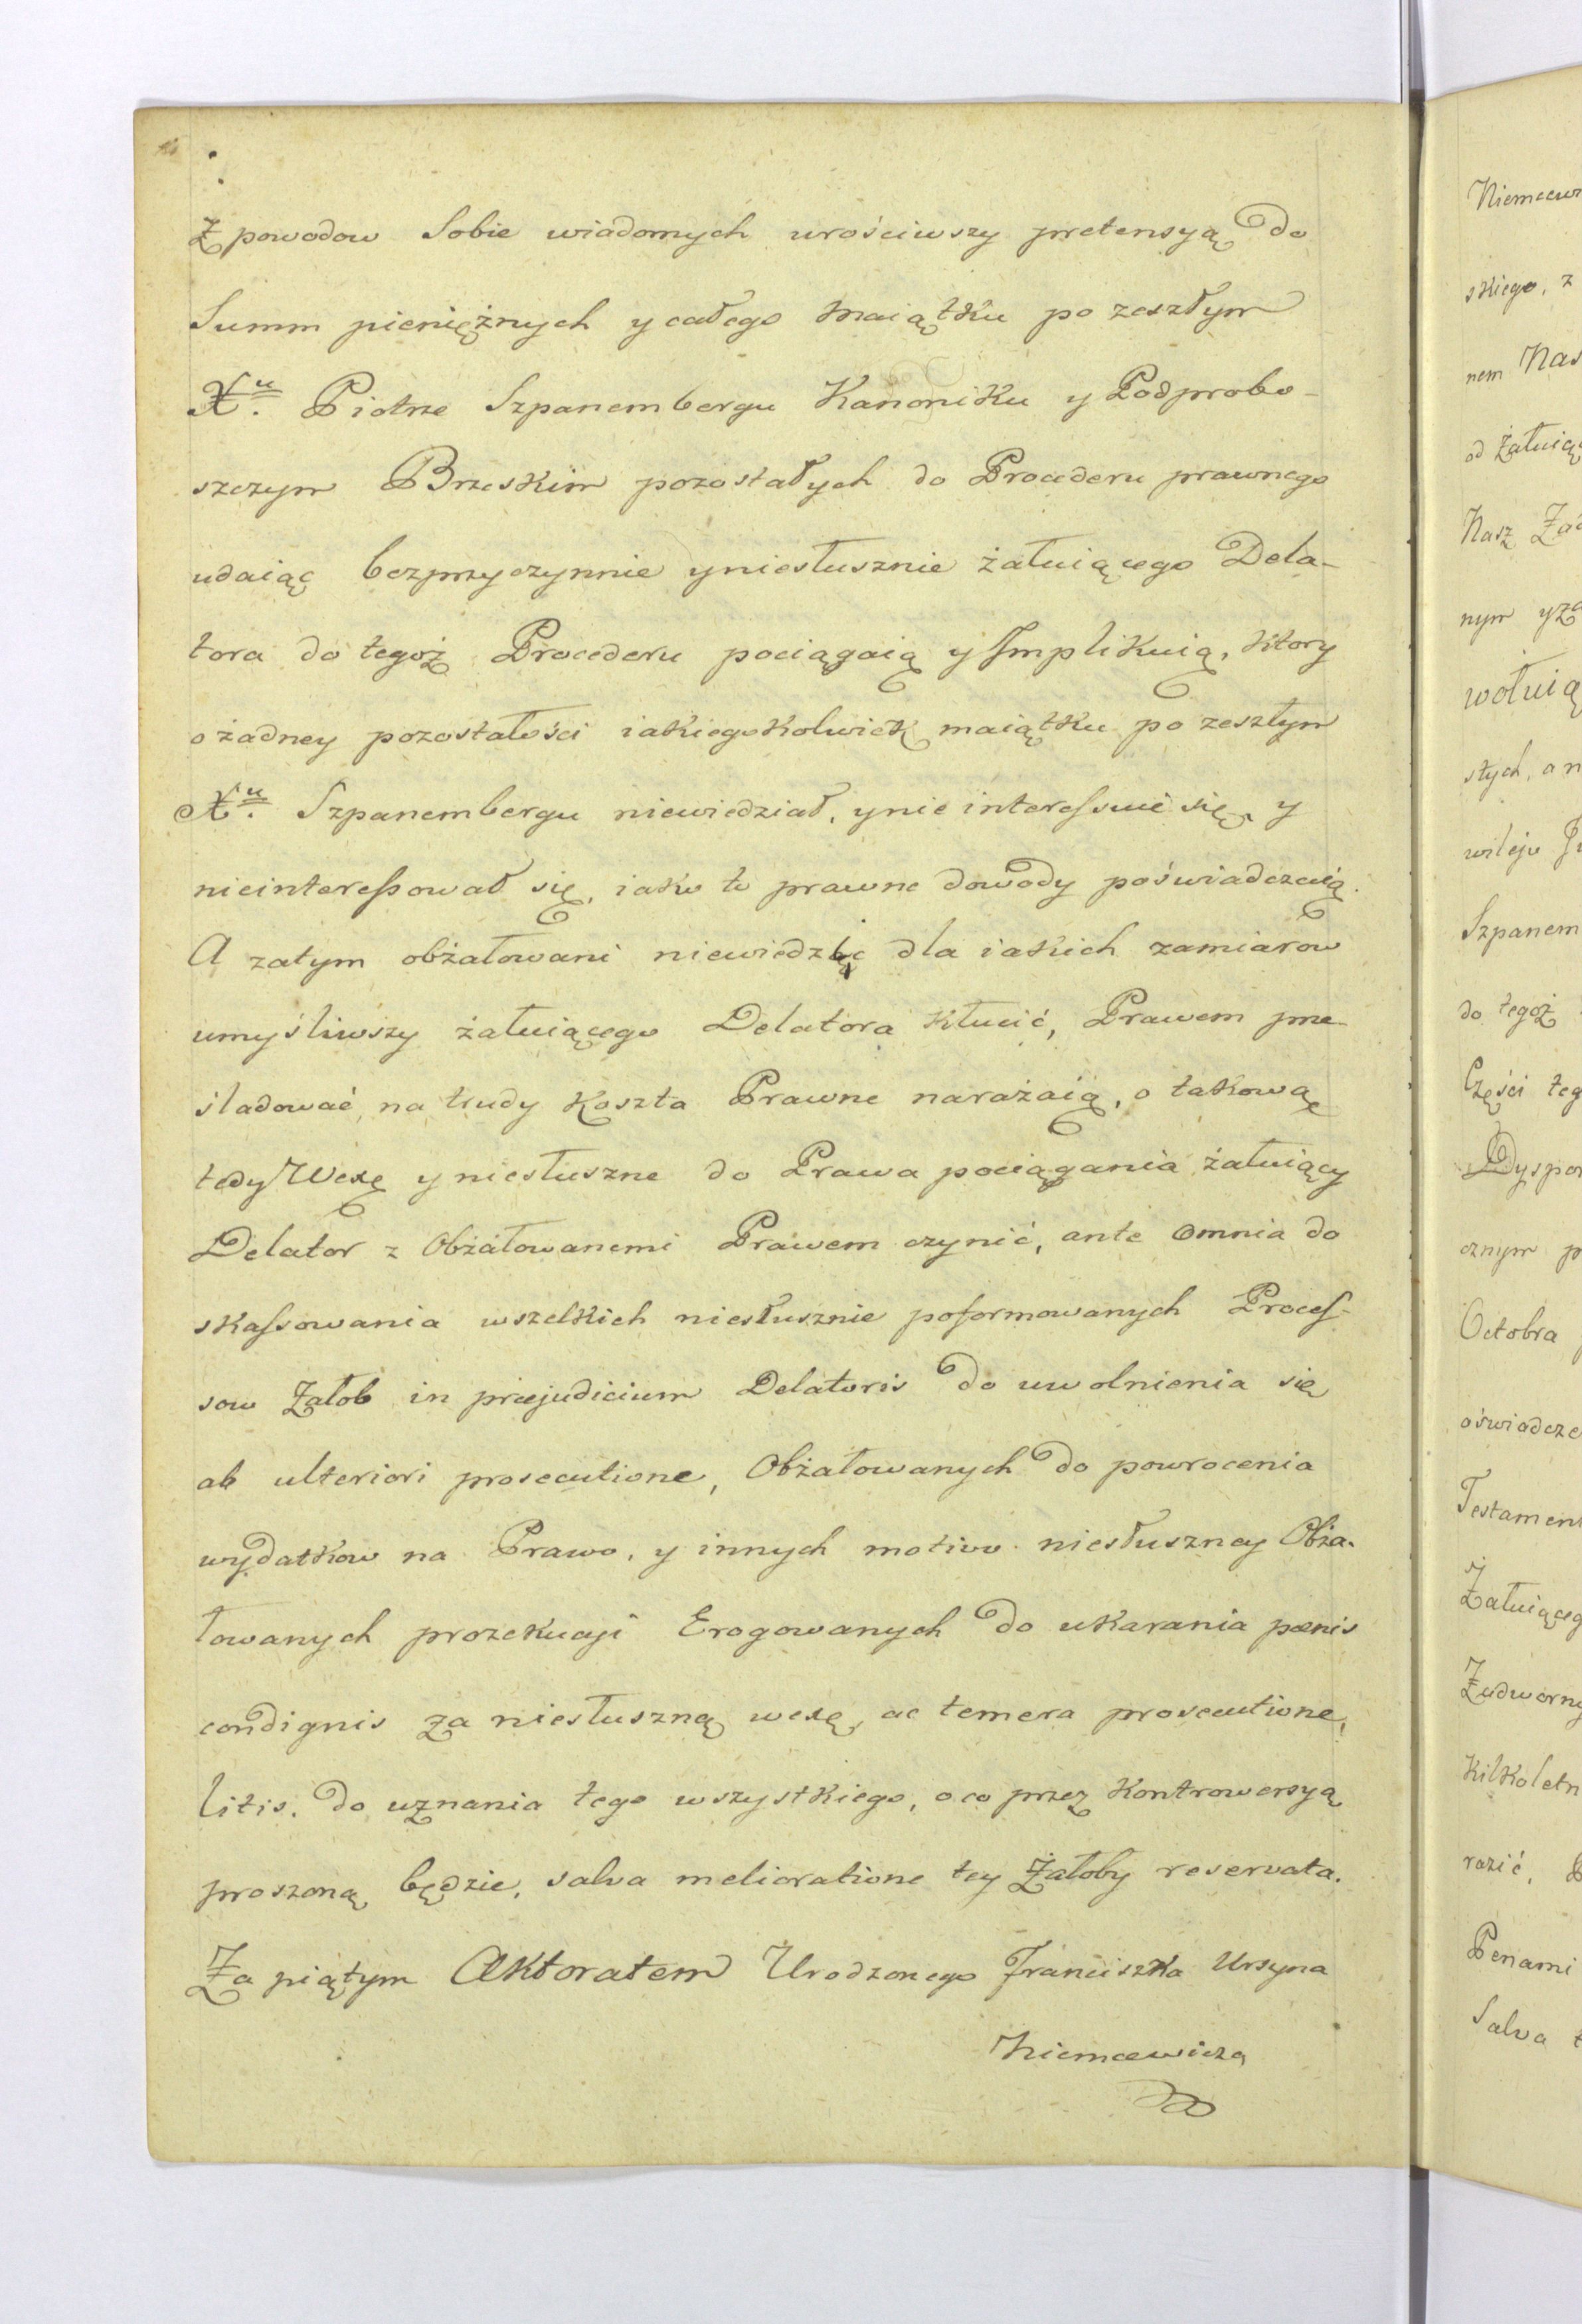 Z powodow Sobie wiadomych urościwszy pretensyą do
Summ pieniężnych y całego Maiątku po zeszłym
Xu. Piotrze Szpanembergu Kanoniku y Podprobo-
szczym Brzeskim pozostałych do Procederu prawnego
udaiąc bezprzyczynnie y niesłusznie żałuiącego Dela-
tora do tegoż Procederu pociągaią y Implikuią, ktory
o żadney pozostałości iakiegokolwiek maiątku po zeszłym
Xu. Szpanembergu niewiedział, y nie interessuie się, y
nieinteressował się, iako te prawne dowody poświadczaią.
A zatym obżałowani niewiedzieć dla iakich zamiarow
umyśliwszy żałuiącego Delatora kłucić, Prawem prze-
śladować, na trudy koszta Prawne narażaią, o takową
tedy Wexę y niesłuszne do Prawa pociągania żałuiący
Delator z Obżałowanemi Prawem czynić, ante omnia do
skassowania wszelkich niesłusznie poformowanych Proces-
sow Żałob in præjudicium Delatoris do uwolnienia się
ab ulteriori prosecutione, Obżałowanych do powrocenia
wydatkow na Prawo, y innych motivo niesłuszney Obża-
łowanych prozekucyi Erogowanych do ukarania pœnis
condignis za niesłuszną wexę, ac temera prosecutione,
litis, do uznania tego wszystkiego, o co przez Kontrowersyą
proszoną będzie, salva melioratione tey Żałoby reservata.
Za piątym Aktoratem Urodzonego Franciszka Ursyna
Niemcewicza
Niemcew
skiego, z
nem Nas
od Żałuią
Nasz Zad
nym y za
wołuią
stych, a n
wileju
Szpanem
do tegoż
Części teg
Dyspo
cznym p
Octobra
oświadcze
Testamen
Żałuiąceg
Zadworny
Kilkoletn
razić,
Penami
Salva